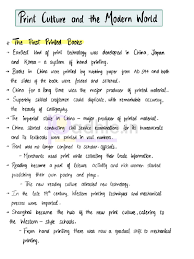 Print Culture and the Modern World
The First Printed Books
Earliest kind of print technology was developed in China, Japan
and Korea - a system of hand printing.
Books in China were printed by rubbing paper from AD 594 and both
sides of the book were folded and stitched.
China for a long time was the major producer of printed material.
Superbly skilled craftsmen could duplicate, with remarkable accuracy,
the beauty of calligraphy.
The Imperial state in China - major producer of printed material.
China started conducting service examinations for bureaucrats
and its textbooks were printed in vast numbers.
Print was no longer confined to scholar-officials.
Merchants used print while collecting their trade info.
Reading became a part of leisure activity and rich women started
publishing their own poetry and plays.
The new reading culture attracted new technology.
In the late 19th century Western printing techniques and mechanical
presses were imported.
Shanghai became the hub of the new print culture, catering to
the Western - style schools.
From hand printing there was now a gradual shift to
mechanical printing.